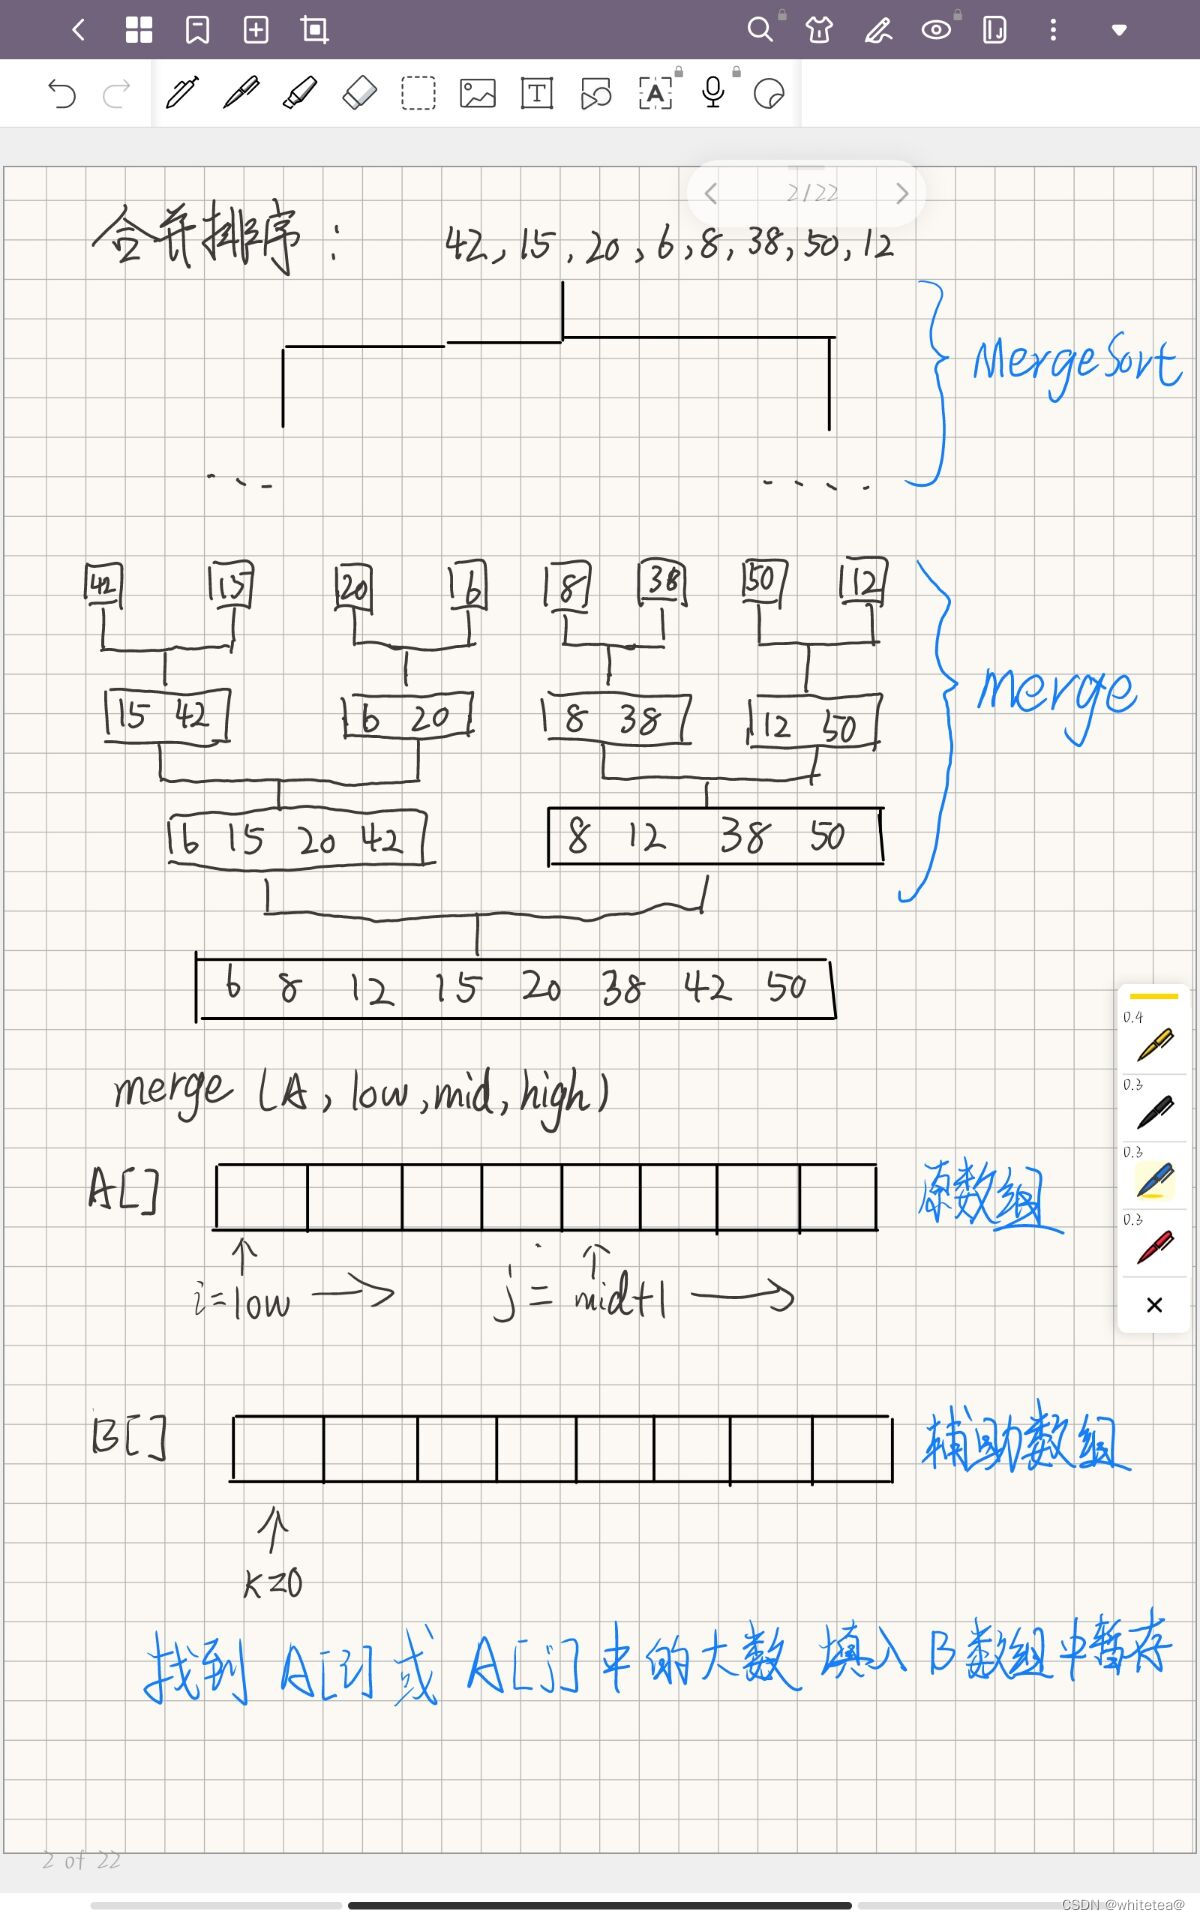 2/22
合并排序: 42, 15, 20, 6, 8, 38, 50, 12
MergeSort
42 15 20 6 8 38 50 12
merge
15 42 6 20 8 38 12 50
6 15 20 42 8 12 38 50
6 8 12 15 20 38 42 50
merge (A, low, mid, high)
A[] 原数组
i=low j = mid+1
B[] 辅助数组
K=0
找到 A[i] 或 A[j] 中的大数 填入 B 数组中暂存
0.4
0.3
0.3
0.3
2 of 22
CSDN @whitetea@